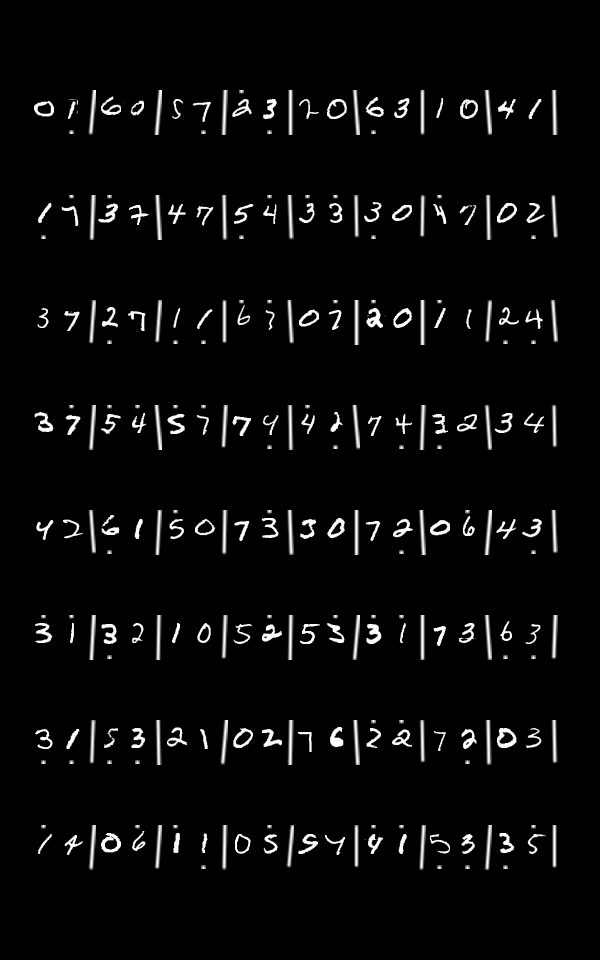 0 1 | 6 0 | 5 7 | 2 3 | 2 0 | 6 3 | 1 0 | 4 1 |
1 7 | 3 7 | 4 7 | 5 4 | 3 3 | 3 0 | 4 7 | 0 2 |
3 7 | 2 7 | 1 1 | 6 3 | 0 7 | 2 0 | 1 1 | 2 4 |
3 7 | 5 4 | 5 7 | 7 4 | 4 2 | 7 4 | 3 2 | 3 4 |
4 2 | 6 1 | 5 0 | 7 3 | 3 0 | 7 2 | 0 6 | 4 3 |
3 1 | 3 2 | 1 0 | 5 2 | 5 3 | 3 1 | 7 3 | 6 3 |
3 1 | 5 3 | 2 1 | 0 2 | 7 6 | 2 2 | 7 2 | 0 3 |
1 4 | 0 6 | 1 1 | 0 5 | 5 4 | 4 1 | 5 3 | 3 5 |